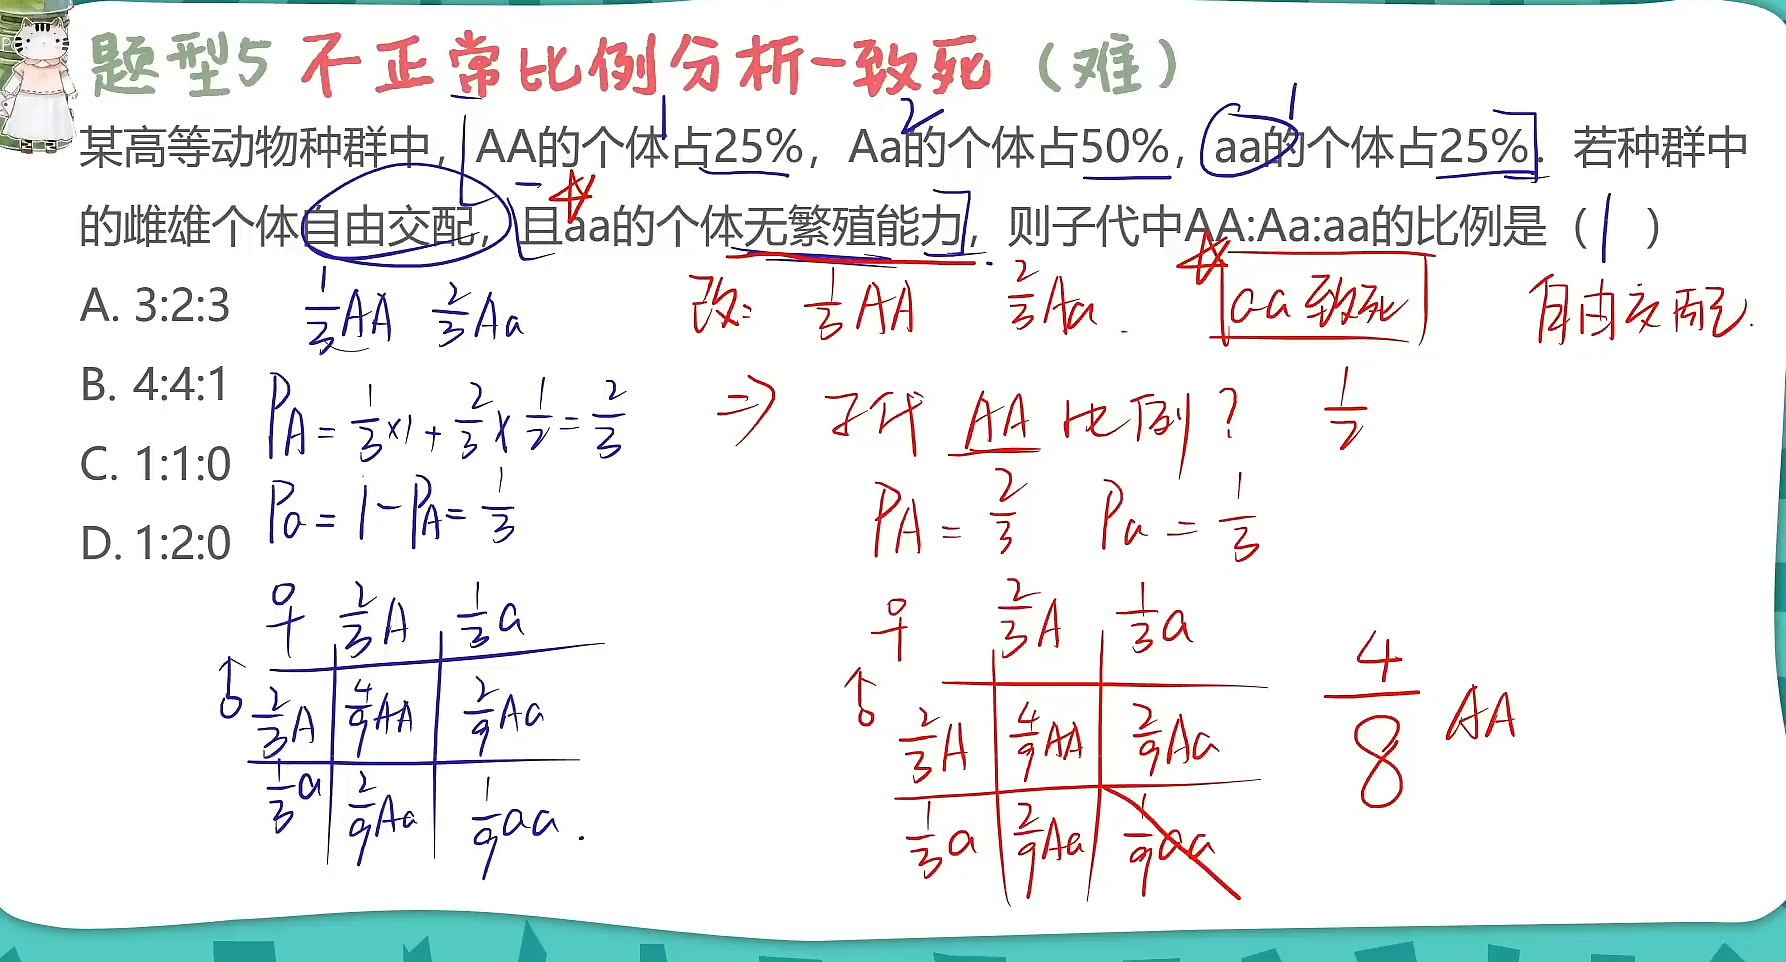 题型5 不正常比例分析-致死（难）
某高等动物种群中，AA的个体占25%，Aa的个体占50%，aa的个体占25%．若种群中
1 2 1
的雌雄个体自由交配，且aa的个体无繁殖能力，则子代中AA:Aa:aa的比例是（ ）
A. 3:2:3
B. 4:4:1
C. 1:1:0
D. 1:2:0
1/3AA 2/3Aa
PA=1/3×1+2/3×1/2=2/3
Pa=1-PA=1/3
♀ 2/3A 1/3a
♂
2/3A 4/9AA 2/9Aa
1/3a 2/9Aa 1/9aa.
改: 1/3AA 2/3Aa. aa致死 自由交配.
⇒ 子代 AA 比例? 1/2
PA=2/3 Pa=1/3
♀ 2/3A 1/3a
♂
2/3A 4/9AA 2/9Aa
1/3a 2/9Aa 1/9aa
4/8 AA